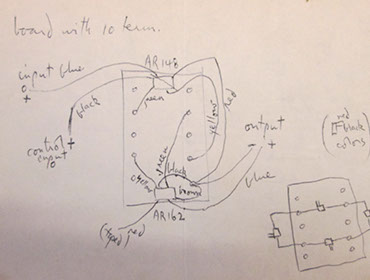 board with 10 term.
AR148
input blue
+
black
control
input
green
yellow
red
output
- +
green
black
brown
green
blue
AR162
(taped) red
(red
black
colors)